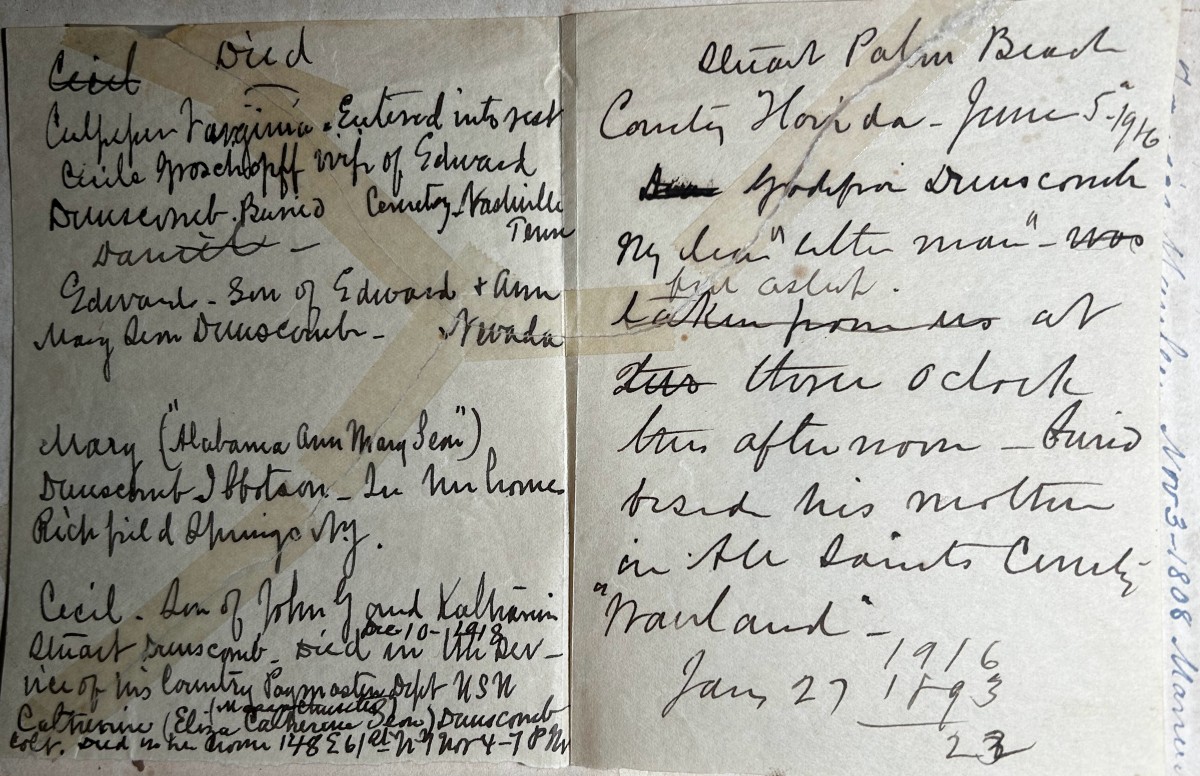 Died
Cecil
Culpeper Virginia. Entered into rest
Cecile Groschopff wife of Edward
Dunscomb. Buried Cemetery - Nashville
Tenn
Daniel -
Edward - Son of Edward + Ann
Mary Dunscomb - Nevada
Mary ("Alabama Ann Mary")
Dunscomb Ibbotson - In her home
Richfield Springs N.Y.
Cecil. Son of John G and Katharine
Dec 10 - 1918
Stuart Dunscomb - Died in the Ser-
vice of his Country Paymaster Dept USN
Catherine (Eliza Catherine) Dunscomb
Colt. Died in her home 148 E 61st N Y Nov 4 - 7 P M
Stuart Palm Beach
County Florida - June 5 - 1916
Godefroi Dunscomb
My dear "little man" - was
fell asleep.
taken from us at
two three O clock
this afternoon - buried
beside his mother
in All Saints Cemetery
"Navland" -
1916
Jan 27 1893
23
Nov 3 - 1808